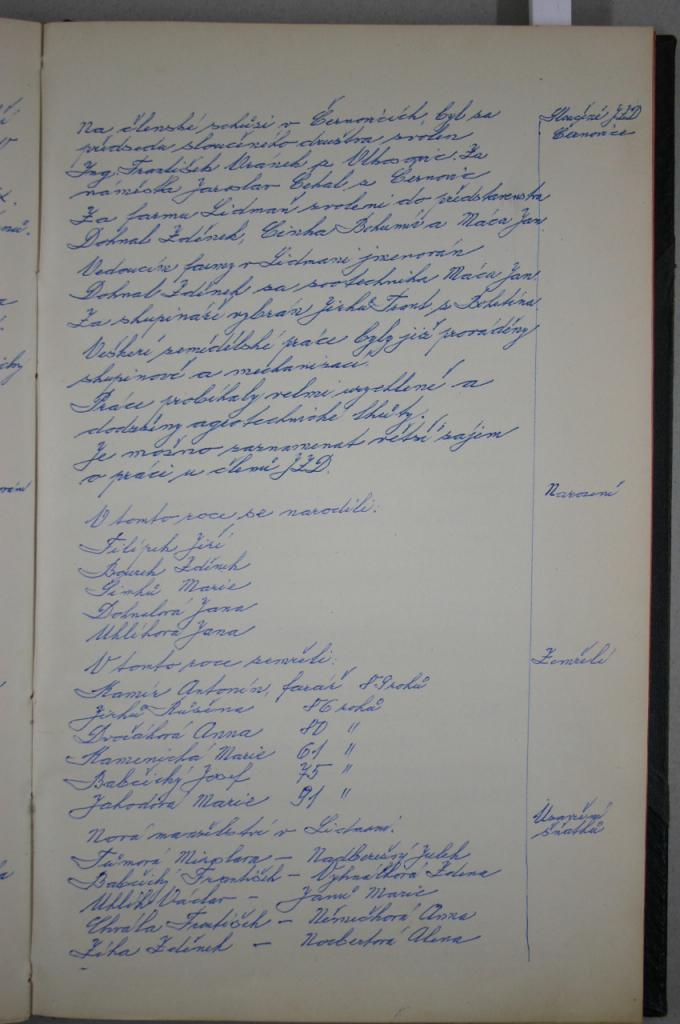 Na členské schůzi v Černovicích, byl za
předsedu sloučeného družstva zvolen
Ing. František Vránek z Vlkosovic. Za
náměstka Jaroslav Cekal z Černovic
Za farmu Lidmaň zvoleni do představenstva
Dohnal Zdeněk, Činka Bohumil a Máca Jan
Vedoucím farmy v Lidmani jmenován
Dohnal Zdeněk, za zootechnika Máca Jan.
Za skupináře vybrán Jirků Frant. z Bohdína
Veškeré zemědělské práce byly již prováděny
skupinově a mechanizací.
Práce probíhaly velmi urychleně a
dodrženy agrotechnické lhůty.
Je možno zaznamenat větší zájem
o práci u členů JZD.
Sloučení JZD
Černovice
V tomto roce se narodili:
Filípek Jiří
Bourek Zdeněk
Simků Marie
Dohnalová Jana
Uhlíková Jana
Narození
V tomto roce zemřeli:
Kamír Antonín, farář 89 roků
Jirků Růžena 86 roků
Dvořáková Anna 80 "
Kamenická Marie 61 "
Babčický Josef 75 "
Jahodová Marie 91 "
Zemřelí
Nová manželství v Lidmani.
Tůmová Miroslava – Nadberežný Julek
Babčický František – Vyhnálková Zdena
Uhlík Václav – Janů Marie
Chvála František – Němečková Anna
Zíka Zdeněk – Norbertová Alena
Uzavření
sňatků